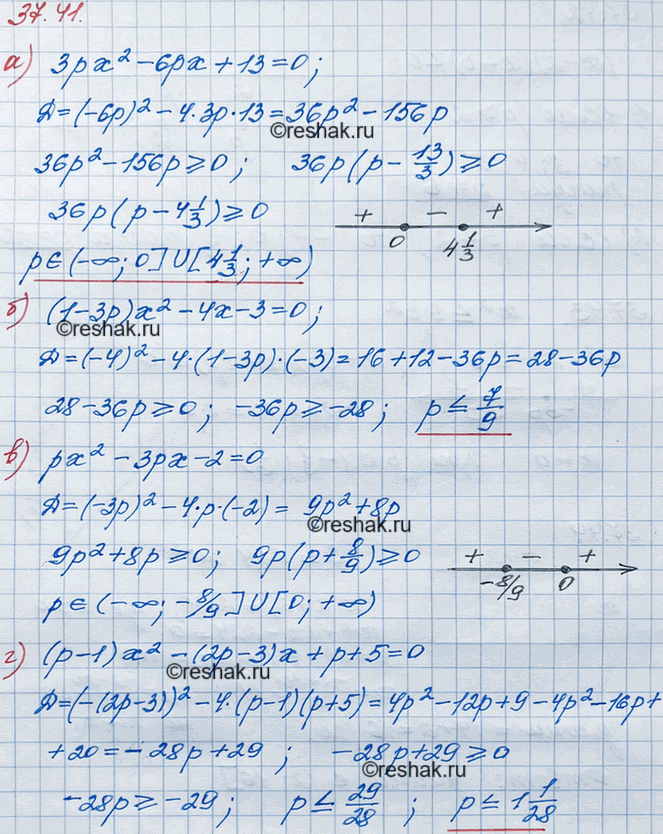 37.41.
а) 3px² - 6px + 13 = 0;
D = (-6p)² - 4·3p·13 = 36p² - 156p
©reshak.ru
36p² - 156p ≥ 0; 36p(p - 13/3) ≥ 0
36p(p - 4 1/3) ≥ 0
+ - +
0 4 1/3
p ∈ (-∞; 0] U [4 1/3; +∞)
б) (1-3p)x² - 4x - 3 = 0;
©reshak.ru
D = (-4)² - 4·(1-3p)·(-3) = 16 + 12 - 36p = 28 - 36p
28 - 36p ≥ 0; -36p ≥ -28; p ≤ 7/9
в) px² - 3px - 2 = 0
D = (-3p)² - 4·p·(-2) = 9p² + 8p
©reshak.ru
9p² + 8p ≥ 0; 9p(p + 8/9) ≥ 0
+ - +
-8/9 0
p ∈ (-∞; -8/9] U [0; +∞)
г) (p-1)x² - (2p-3)x + p + 5 = 0
©reshak.ru
D = (-(2p-3))² - 4·(p-1)(p+5) = 4p² - 12p + 9 - 4p² - 16p +
+ 20 = -28p + 29; -28p + 29 ≥ 0
©reshak.ru
-28p ≥ -29; p ≤ 29/28; p ≤ 1 1/28